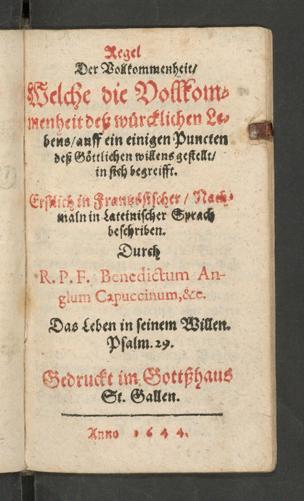 Regel
Der Vollkommenheit/
Welche die Vollkom-
menheit deß würcklichen Le-
bens/auff ein einigen Puncten
deß Göttlichen willens gestellt/
in sich begreifft.
Erstlich in Frantzösischer/ Nach-
maln in Lateinischer Sprach
beschriben.
Durch
R. P. F. Benedictum An-
glum Capuccinum,&c.
Das Leben in seinem Willen.
Psalm. 29.
Gedruckt im Gottßhaus
St. Gallen.
Anno 1644.